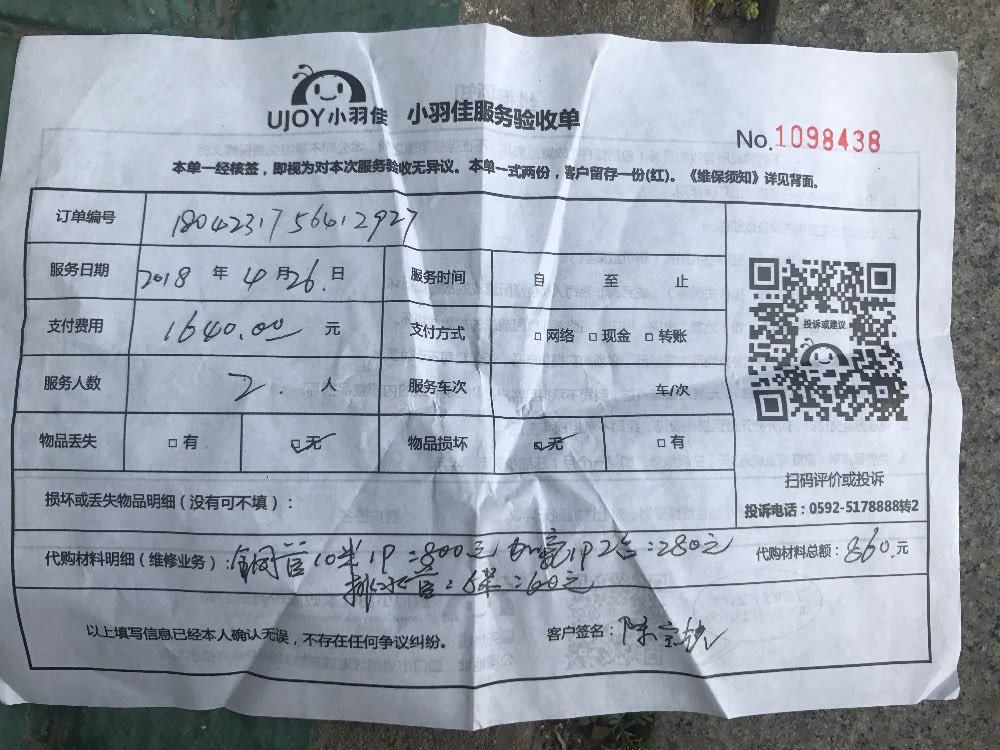 UJOY小羽佳 小羽佳服务验收单
No.1098438
本单一经核签，即视为对本次服务验收无异议。本单一式两份，客户留存一份(红)。《维保须知》详见背面。
订单编号 1804231756412927
服务日期 2018 年 4 月 26. 日 服务时间 自 至 止
支付费用 1640.00 元 支付方式 □网络 □现金 □转账
投诉或建议
服务人数 2. 人 服务车次 车/次
物品丢失 □有 ☑无 物品损坏 ☑无 □有
扫码评价或投诉
损坏或丢失物品明细（没有可不填）：
投诉电话：0592-5178888转2
代购材料明细（维修业务）：铜管10米1P：800元 加氟1P2台：280元
代购材料总额：860.元
排水管：6米：60元
以上填写信息已经本人确认无误，不存在任何争议纠纷。
客户签名：陈宝